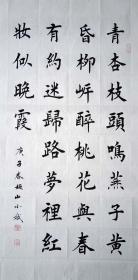 青杏枝頭鳴燕子黃
昏柳岸醉桃花與春
有約迷歸路夢裡紅
妝似晚霞
庚子春山小斌